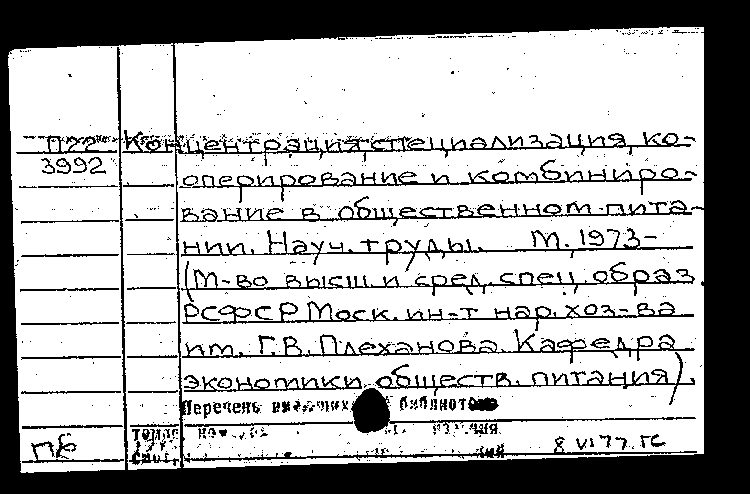 П22 Концентрация, специализация, ко-
3992
оперирование и комбиниро-
вание в общественном пита-
нии. Науч. труды. М., 1973-
(М-во высш. и сред. спец. образ.
РСФСР Моск. ин-т нар. хоз-ва
им. Г.В. Плеханова. Кафедра
экономики обществ. питания).
Перечень библиотеки
ПБ 8 VI 77. ГС